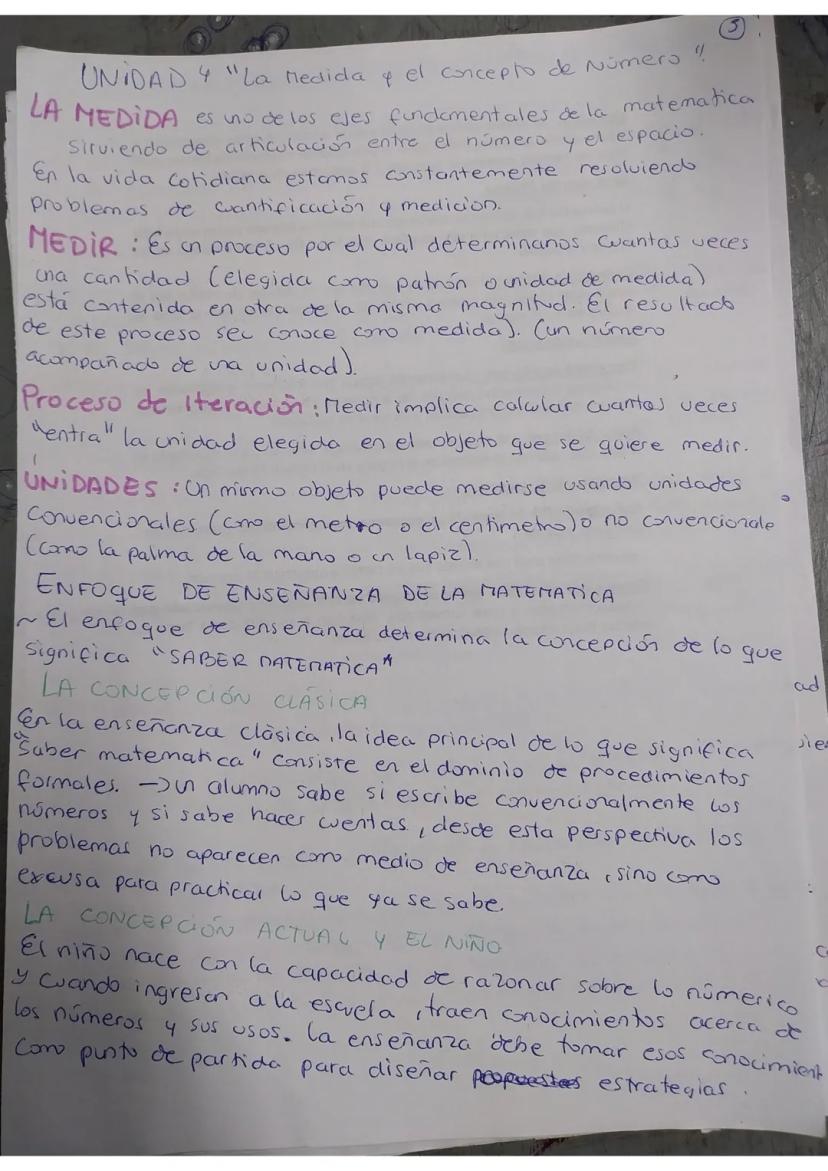 3
UNIDAD 4 "La Medida y el concepto de Número".
LA MEDIDA es uno de los ejes fundamentales de la matematica
sirviendo de articulación entre el número y el espacio.
En la vida cotidiana estamos constantemente resolviendo
problemas de cuantificación y medicion.
MEDIR : Es un proceso por el cual determinanos cuantas veces
una cantidad (elegida como patrón o unidad de medida)
está contenida en otra de la misma magnitud. El resultado
de este proceso sel conoce como medida). (un número
acompañado de una unidad).
Proceso de Iteración : Medir implica calcular cuantas veces
"entra" la unidad elegida en el objeto que se quiere medir.
UNIDADES : Un mismo objeto puede medirse usando unidades
convencionales (como el metro o el centimetro) o no convencionale
(como la palma de la mano o un lapiz).
ENFOQUE DE ENSEÑANZA DE LA MATEMATICA
~ El enfoque de enseñanza determina la concepción de lo que
significa "SABER MATEMATICA"
LA CONCEPCIÓN CLÁSICA
En la enseñanza clásica, la idea principal de lo que significa
"Saber matematica" consiste en el dominio de procedimientos
formales. → un alumno sabe si escribe convencionalmente los
números y si sabe hacer cuentas, desde esta perspectiva los
problemas no aparecen como medio de enseñanza, sino como
excusa para practicar lo que ya se sabe.
LA CONCEPCIÓN ACTUAL Y EL NIÑO
El niño nace con la capacidad de razonar sobre lo númerico
y cuando ingresan a la escuela, traen conocimientos acerca de
los números y sus usos. La enseñanza debe tomar esos conocimient
como punto de partida para diseñar propuestas estrategias.
ad